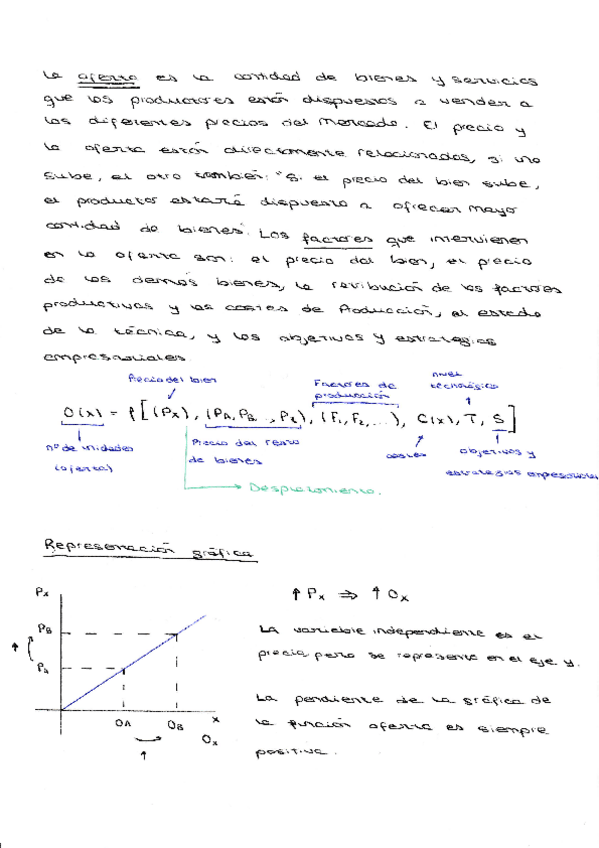 La oferta es la cantidad de bienes y servicios
que los productores están dispuestos a vender a
los diferentes precios del mercado. El precio y
la oferta están directamente relacionados, si uno
sube, el otro también: "Si el precio del bien sube,
el productor estará dispuesto a ofrecer mayor
cantidad de bienes". Los factores que intervienen
en la oferta son: el precio del bien, el precio
de los demás bienes, la retribución de los factores
productivos y los costes de Producción, el estado
de la técnica, y los objetivos y estrategias
empresariales.
Precio del bien
Factores de
producción
nivel
tecnológico
O(x) = f[(Px), (PA, PB..., Pz), (F1, F2, ...), C(x), T, S]
nº de unidades
(oferta)
Precio del resto
de bienes
costes
objetivos y
estrategias empresariales
Desplazamiento.
Representación gráfica
Px
PB
PA
OA
OB
x
Ox
↑
↑
↑ Px ⇒ ↑ Ox
La variable independiente es el
precio pero se representa en el eje y.
La pendiente de la gráfica de
la función oferta es siempre
positiva.